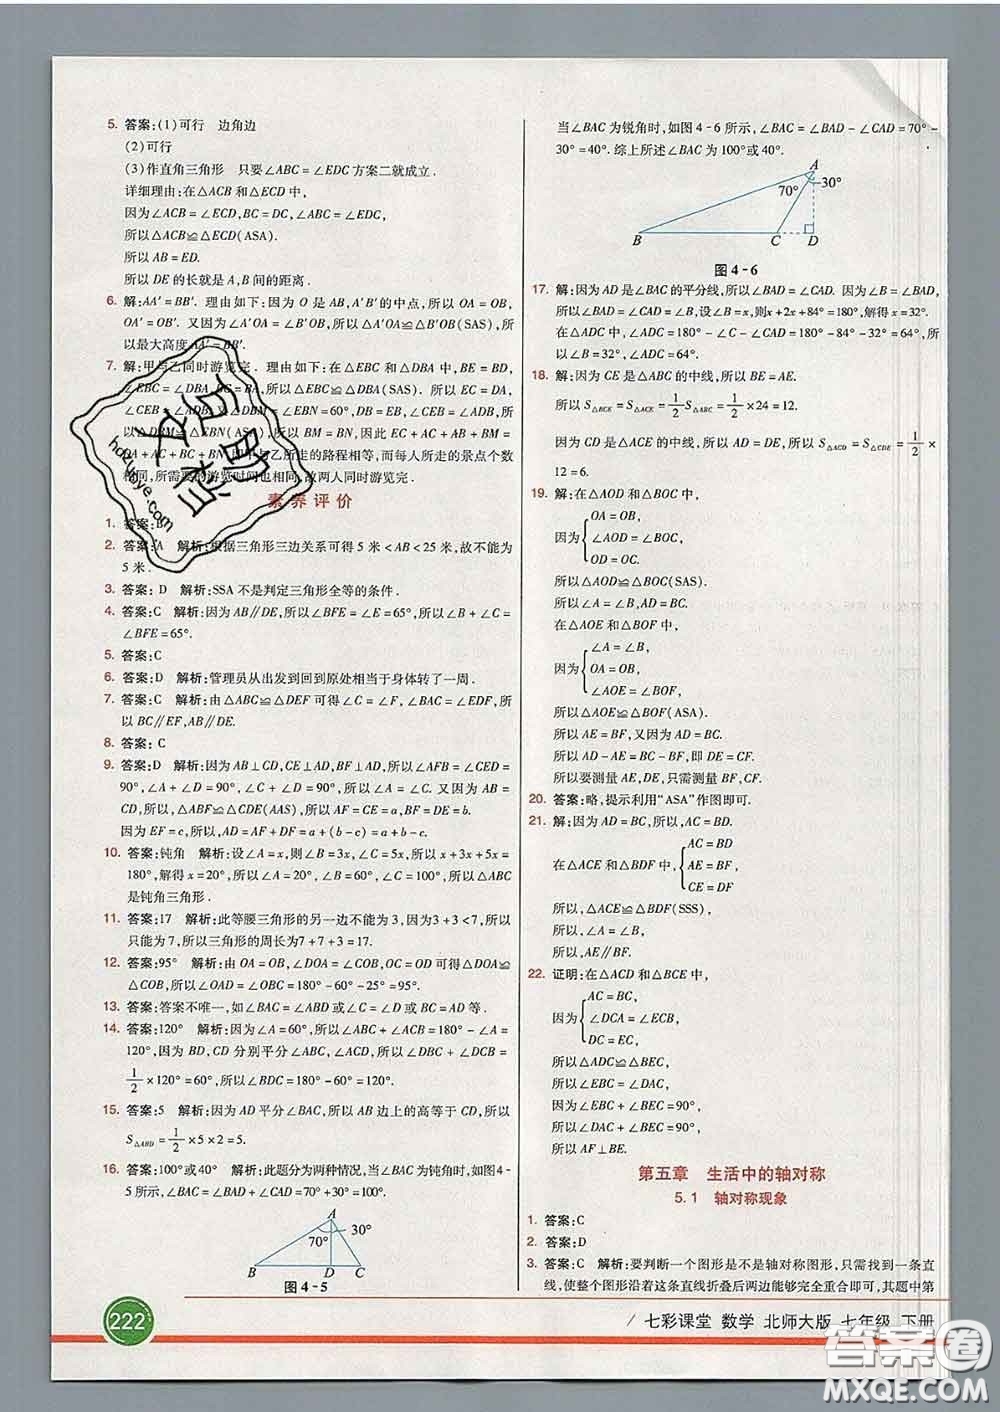 5. 答案:(1)可行　边角边
(2)可行
(3)作直角三角形　只要∠ABC=∠EDC 方案二就成立.
详细理由:在△ABC 和△EDC 中,
因为∠ACB=∠ECD,BC=DC,∠ABC=∠EDC,
所以△ACB≌△ECD(ASA).
所以 AB=ED.
所以 DE 的长就是 A,B 间的距离.
6. 解:AA′=BB′. 理由如下:因为 O 是 AB,A′B′的中点,所以 OA=OB,
OA′=OB′. 又因为∠A′OA=∠B′OB,所以△A′OA≌△B′OB(SAS),所
以最大高度 AA′=BB′.
7. 解:甲与乙同时游览完. 理由如下:在△EBC 和△DBA 中,BE=BD,
∠EBC=∠DBA,BC=BA,所以△EBC≌△DBA(SAS). 所以 EC=DA,
∠CEB=∠ADB. 又∠DBM=∠EBN=60°,DB=EB,∠CEB=∠ADB,所
以△DBM≌△EBN(ASA). 所以 BM=BN,因此 EC+AC+AB+BM=
DA+AC+BC+BN,即甲与乙所走的路程相等,而每人所走的景点个数
相同,所需要的游览时间也相同,故两人同时游览完.
素养评价
1. 答案:B
2. 答案:A　解析:根据三角形三边关系可得 5 米<AB<25 米,故不能为
5 米.
3. 答案: D　解析:SSA 不是判定三角形全等的条件.
4. 答案:C　解析:因为 AB∥DE,所以∠BFE=∠E=65°,所以∠B+∠C=
∠BFE=65°.
5. 答案:C
6. 答案:D　解析:管理员从出发到回到原处相当于身体转了一周.
7. 答案:C　解析:由△ABC≌△DEF 可得∠C=∠F,∠BAC=∠EDF,所
以 BC∥EF,AB∥DE.
8. 答案: C
9. 答案:D　解析:因为 AB⊥CD,CE⊥AD,BF⊥AD,所以∠AFB=∠CED=
90°,∠A+∠D=90°,∠C+∠D=90°,所以∠A=∠C. 又因为 AB=
CD,所以,△ABF≌△CDE(AAS),所以,AF=CE=a,BF=DE=b.
因为 EF=c,所以,AD=AF+DF=a+(b-c)=a+b-c.
10. 答案:钝角　解析:设∠A=x,则∠B=3x,∠C=5x,所以 x+3x+5x=
180°,解得 x=20°,所以∠A=20°,∠B=60°,∠C=100°,所以△ABC
是钝角三角形.
11. 答案:17　解析:此等腰三角形的另一边不能为 3,因为 3+3<7,所以
只能为 7,所以三角形的周长为 7+7+3=17.
12. 答案:95°　解析:由 OA=OB,∠DOA=∠COB,OC=OD 可得△DOA≌
△COB,所以∠OAD=∠OBC=180°-60°-25°=95°.
13. 答案:答案不唯一,如∠BAC=∠ABD 或∠C=∠D 或 BC=AD 等.
14. 答案:120°　解析:因为∠A=60°,所以∠ABC+∠ACB=180°-∠A=
120°,因为 BD,CD 分别平分∠ABC,∠ACD,所以∠DBC+∠DCB=
1/2×120°=60°,所以∠BDC=180°-60°=120°.
15. 答案:5　解析:因为 AD 平分∠BAC,所以 AB 边上的高等于 CD,所以
S△ABD=1/2×5×2=5.
16. 答案:100°或 40°　解析:此题分为两种情况,当∠BAC 为钝角时,如图 4-
5 所示,∠BAC=∠BAD+∠CAD=70°+30°=100°.
A
70°
30°
B
D
C
图 4-5
222
当∠BAC 为锐角时,如图 4-6 所示,∠BAC=∠BAD-∠CAD=70°-
30°=40°. 综上所述∠BAC 为 100°或 40°.
A
70°
30°
B
C
D
图 4-6
17. 解:因为 AD 是∠BAC 的平分线,所以∠BAD=∠CAD. 因为∠B=∠BAD,
所以∠BAD=∠CAD=∠B,设∠B=x,则x+2x+84°=180°,解得x=32°.
在△ADC 中,∠ADC=180°-∠C-∠CAD=180°-84°-32°=64°,所
以∠B=32°,∠ADC=64°.
18. 解:因为 CE 是△ABC 的中线,所以 BE=AE.
所以 S△BCE=S△ACE=1/2S△ABC=1/2×24=12.
因为 CD 是△ACE 的中线,所以 AD=DE,所以 S△ACD=S△CDE=1/2×
12=6.
19. 解:在△AOD 和△BOC 中,
OA=OB,
因为 ∠O=∠O,
OD=OC.
所以△AOD≌△BOC(SAS).
所以∠A=∠B,AD=BC.
在△AOE 和△BOF 中,
∠A=∠B,
因为 OA=OB,
∠AOE=∠BOF,
所以△AOE≌△BOF(ASA).
所以 AE=BF,又因为 AD=BC.
所以 AD-AE=BC-BF,即 DE=CF.
所以要测量 AE,DE,只需测量 BF,CF.
20. 答案:略,提示利用“ASA”作图即可.
21. 解:因为 AD=BC,所以,AC=BD.
AC=BD
在△ACE 和△BDF 中, AE=BF,
CE=DF
所以,△ACE≌△BDF(SSS),
所以,∠A=∠B,
所以,AE∥BF.
22. 证明:在△ACD 和△BCE 中,
AC=BC,
因为 ∠DCA=∠ECB,
DC=EC,
所以△ADC≌△BEC,
所以∠EBC=∠DAC,
因为∠EBC+∠BEC=90°,
所以∠DAC+∠BEC=90°,
所以 AF⊥BE.
第五章　生活中的轴对称
5.1　轴对称现象
1. 答案:C
2. 答案:D
3. 答案:C　解析:要判断一个图形是不是轴对称图形,只需找到一条直
线,使整个图形沿着这条直线折叠后两边能够完全重合即可,其题中第
/ 七彩课堂 数学 北师大版 七年级 下册
答案圈
MXQE.COM